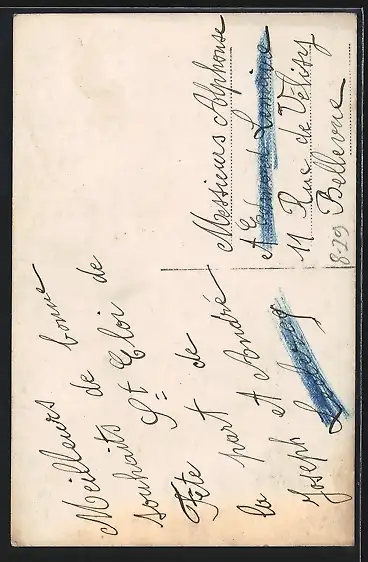 Meilleurs bonne
souhaits de
St Eloi de
Fête de
la part
et André
Joseph
Messieurs Alphonse
A Edmond
11 Rue de Vélisy
Bellevue
829